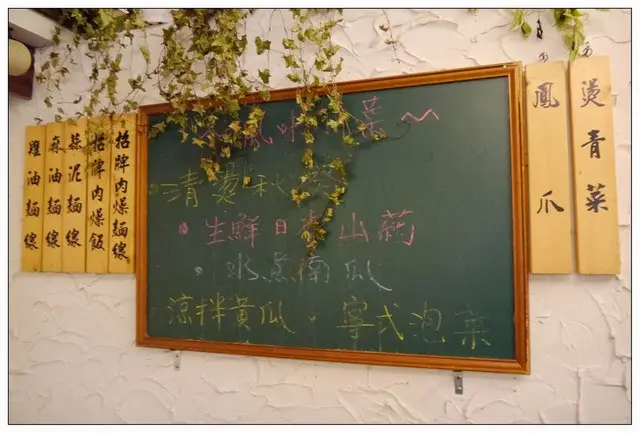 燙青菜
鳳爪
風味小菜
清燙秋葵
生鮮日本山藥
水煮南瓜
涼拌黃瓜、寧式泡菜
招牌肉燥麵線
招牌肉燥飯
蒜泥麵線
麻油麵線
雞油麵線